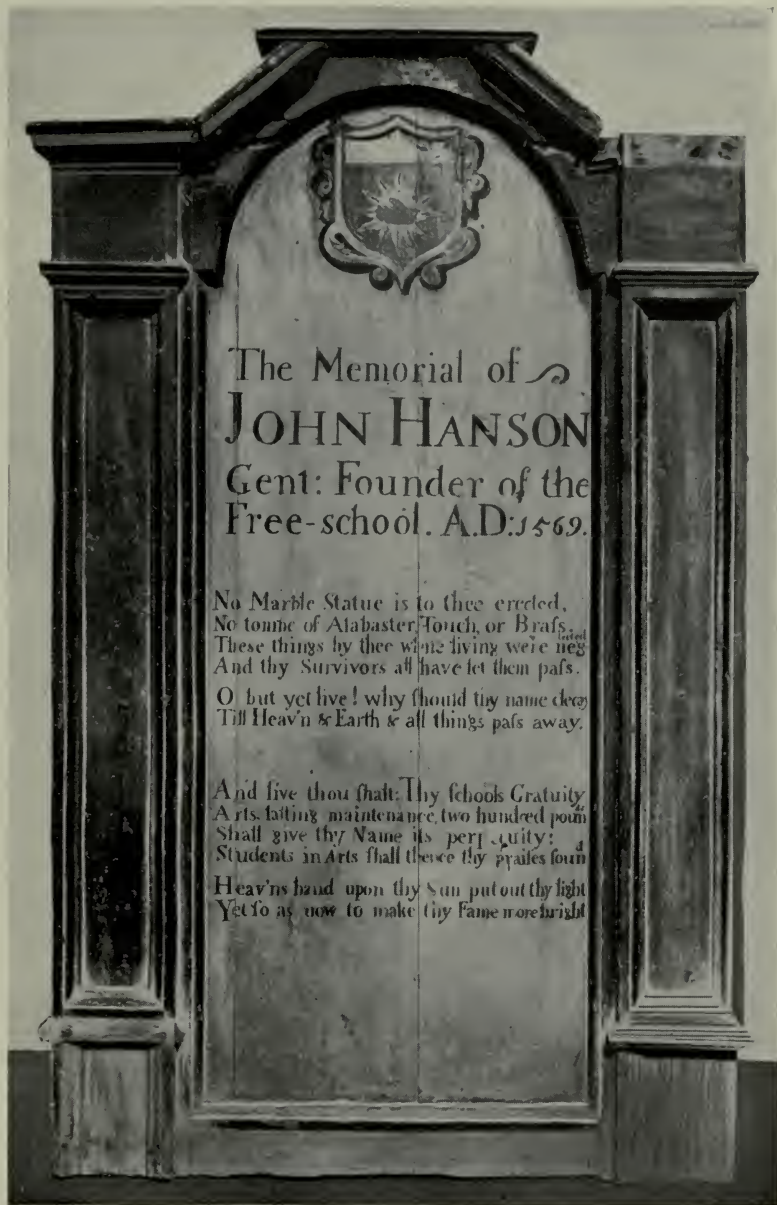 The Memorial of
JOHN HANSON
Gent: Founder of the
Free-school. A.D: 1569.
No Marble Statue is to thee erected,
No tombe of Alabaster, Touch, or Braſs,
These things by thee while living were neglected
And thy Survivors all have let them paſs.
O but yet live! why ſhould thy name decay
Till Heav'n & Earth & all things paſs away.
And live thou ſhalt: Thy ſchools Gratuity
Arts laſting maintenance, two hundred pound
Shall give thy Name its perpetuity:
Students in Arts ſhall thence thy praiſes ſound
Heav'ns hand upon thy Sun put out thy light
Yet ſo as now to make thy Fame more bright